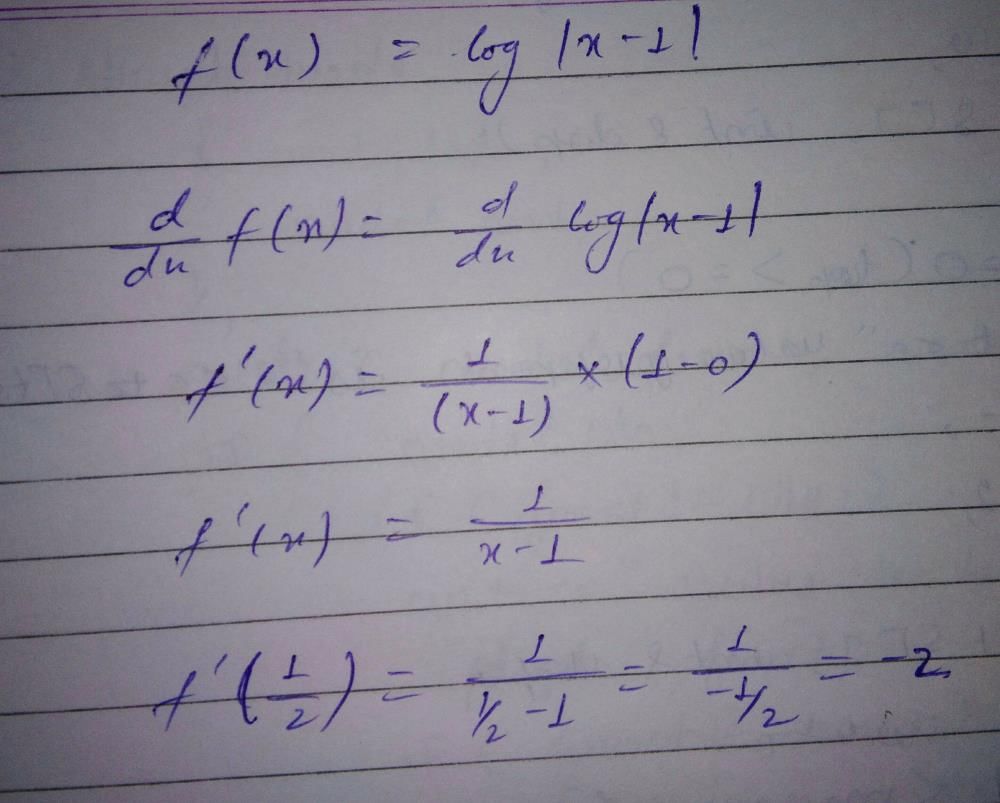 f(x) = log |x-1|
d/dx f(x) = d/dx log|x-1|
f'(x) = 1/(x-1) × (1-0)
f'(x) = 1/x-1
f'(1/2) = 1/1/2-1 = 1/-1/2 = -2